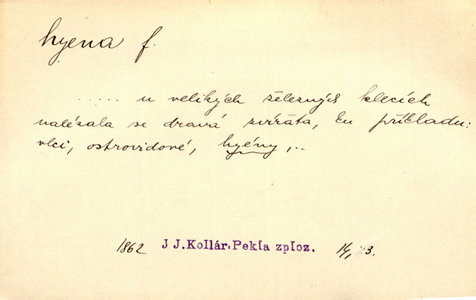 hyena f.
..... u velikých železných klecích
nalézala se dravá zvířata, ku příkladu:
vlci, ostrovidové, hyény,..
1862 J J. Kollár. Pekla zploz. 14, 3.